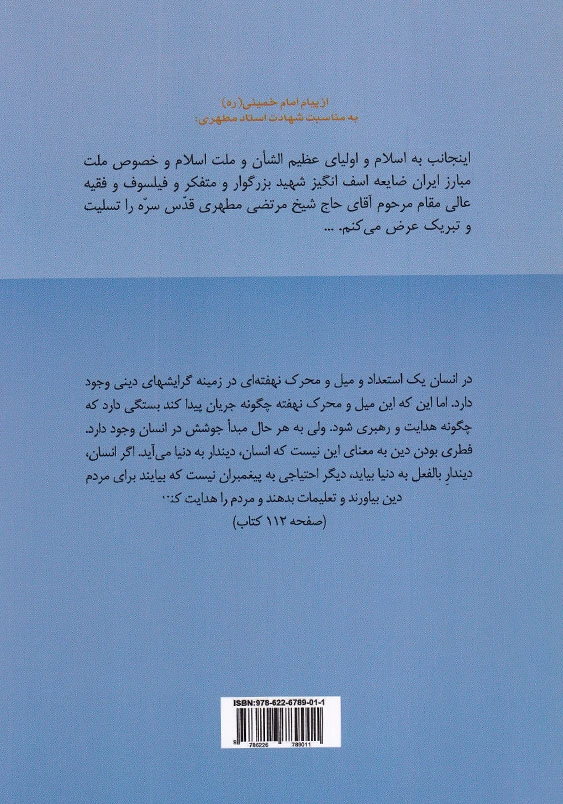 از پیام امام خمینی(ره)
به مناسبت شهادت استاد مطهری:
اینجانب به اسلام و اولیای عظیم الشأن و ملت اسلام و خصوص ملت
مبارز ایران ضایعه اسف انگیز شهید بزرگوار و متفکر و فیلسوف و فقیه
عالی مقام مرحوم آقای حاج شیخ مرتضی مطهری قدّس سرّه را تسلیت
و تبریک عرض می‌کنم. ...
در انسان یک استعداد و میل و محرک نهفته‌ای در زمینه گرایشهای دینی وجود
دارد. اما این که این میل و محرک نهفته چگونه جریان پیدا کند بستگی دارد که
چگونه هدایت و رهبری شود. ولی به هر حال مبدأ جوشش در انسان وجود دارد.
فطری بودن دین به معنای این نیست که انسان، دیندار به دنیا می‌آید. اگر انسان،
دیندارِ بالفعل به دنیا بیاید، دیگر احتیاجی به پیغمبران نیست که بیایند برای مردم
دین بیاورند و تعلیمات بدهند و مردم را هدایت
(صفحه ۱۱۲ کتاب)
ISBN:978-622-6789-01-1
9 786226 789011